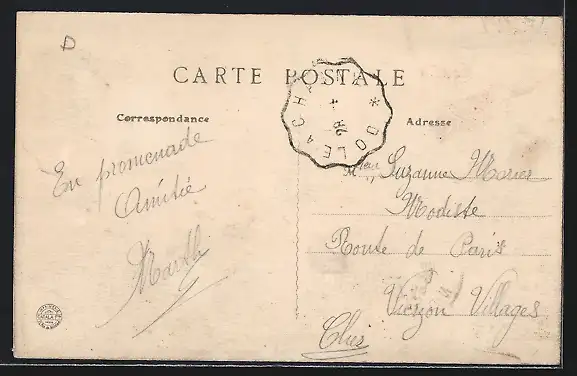 D
CARTE POSTALE
Correspondance
Adresse
DOLE A CH
28
En promenade
Amitié
Marth
Melle Suzanne Marier
Modiste
Route de Paris
Vierzon Villages
Cher